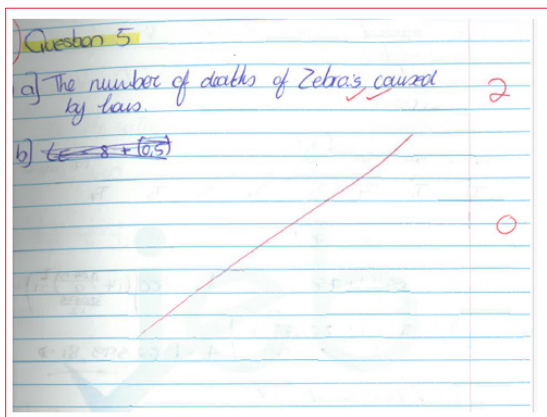 Question 5
a] The number of deaths of Zebra's caused
by lions.
2
b]
0